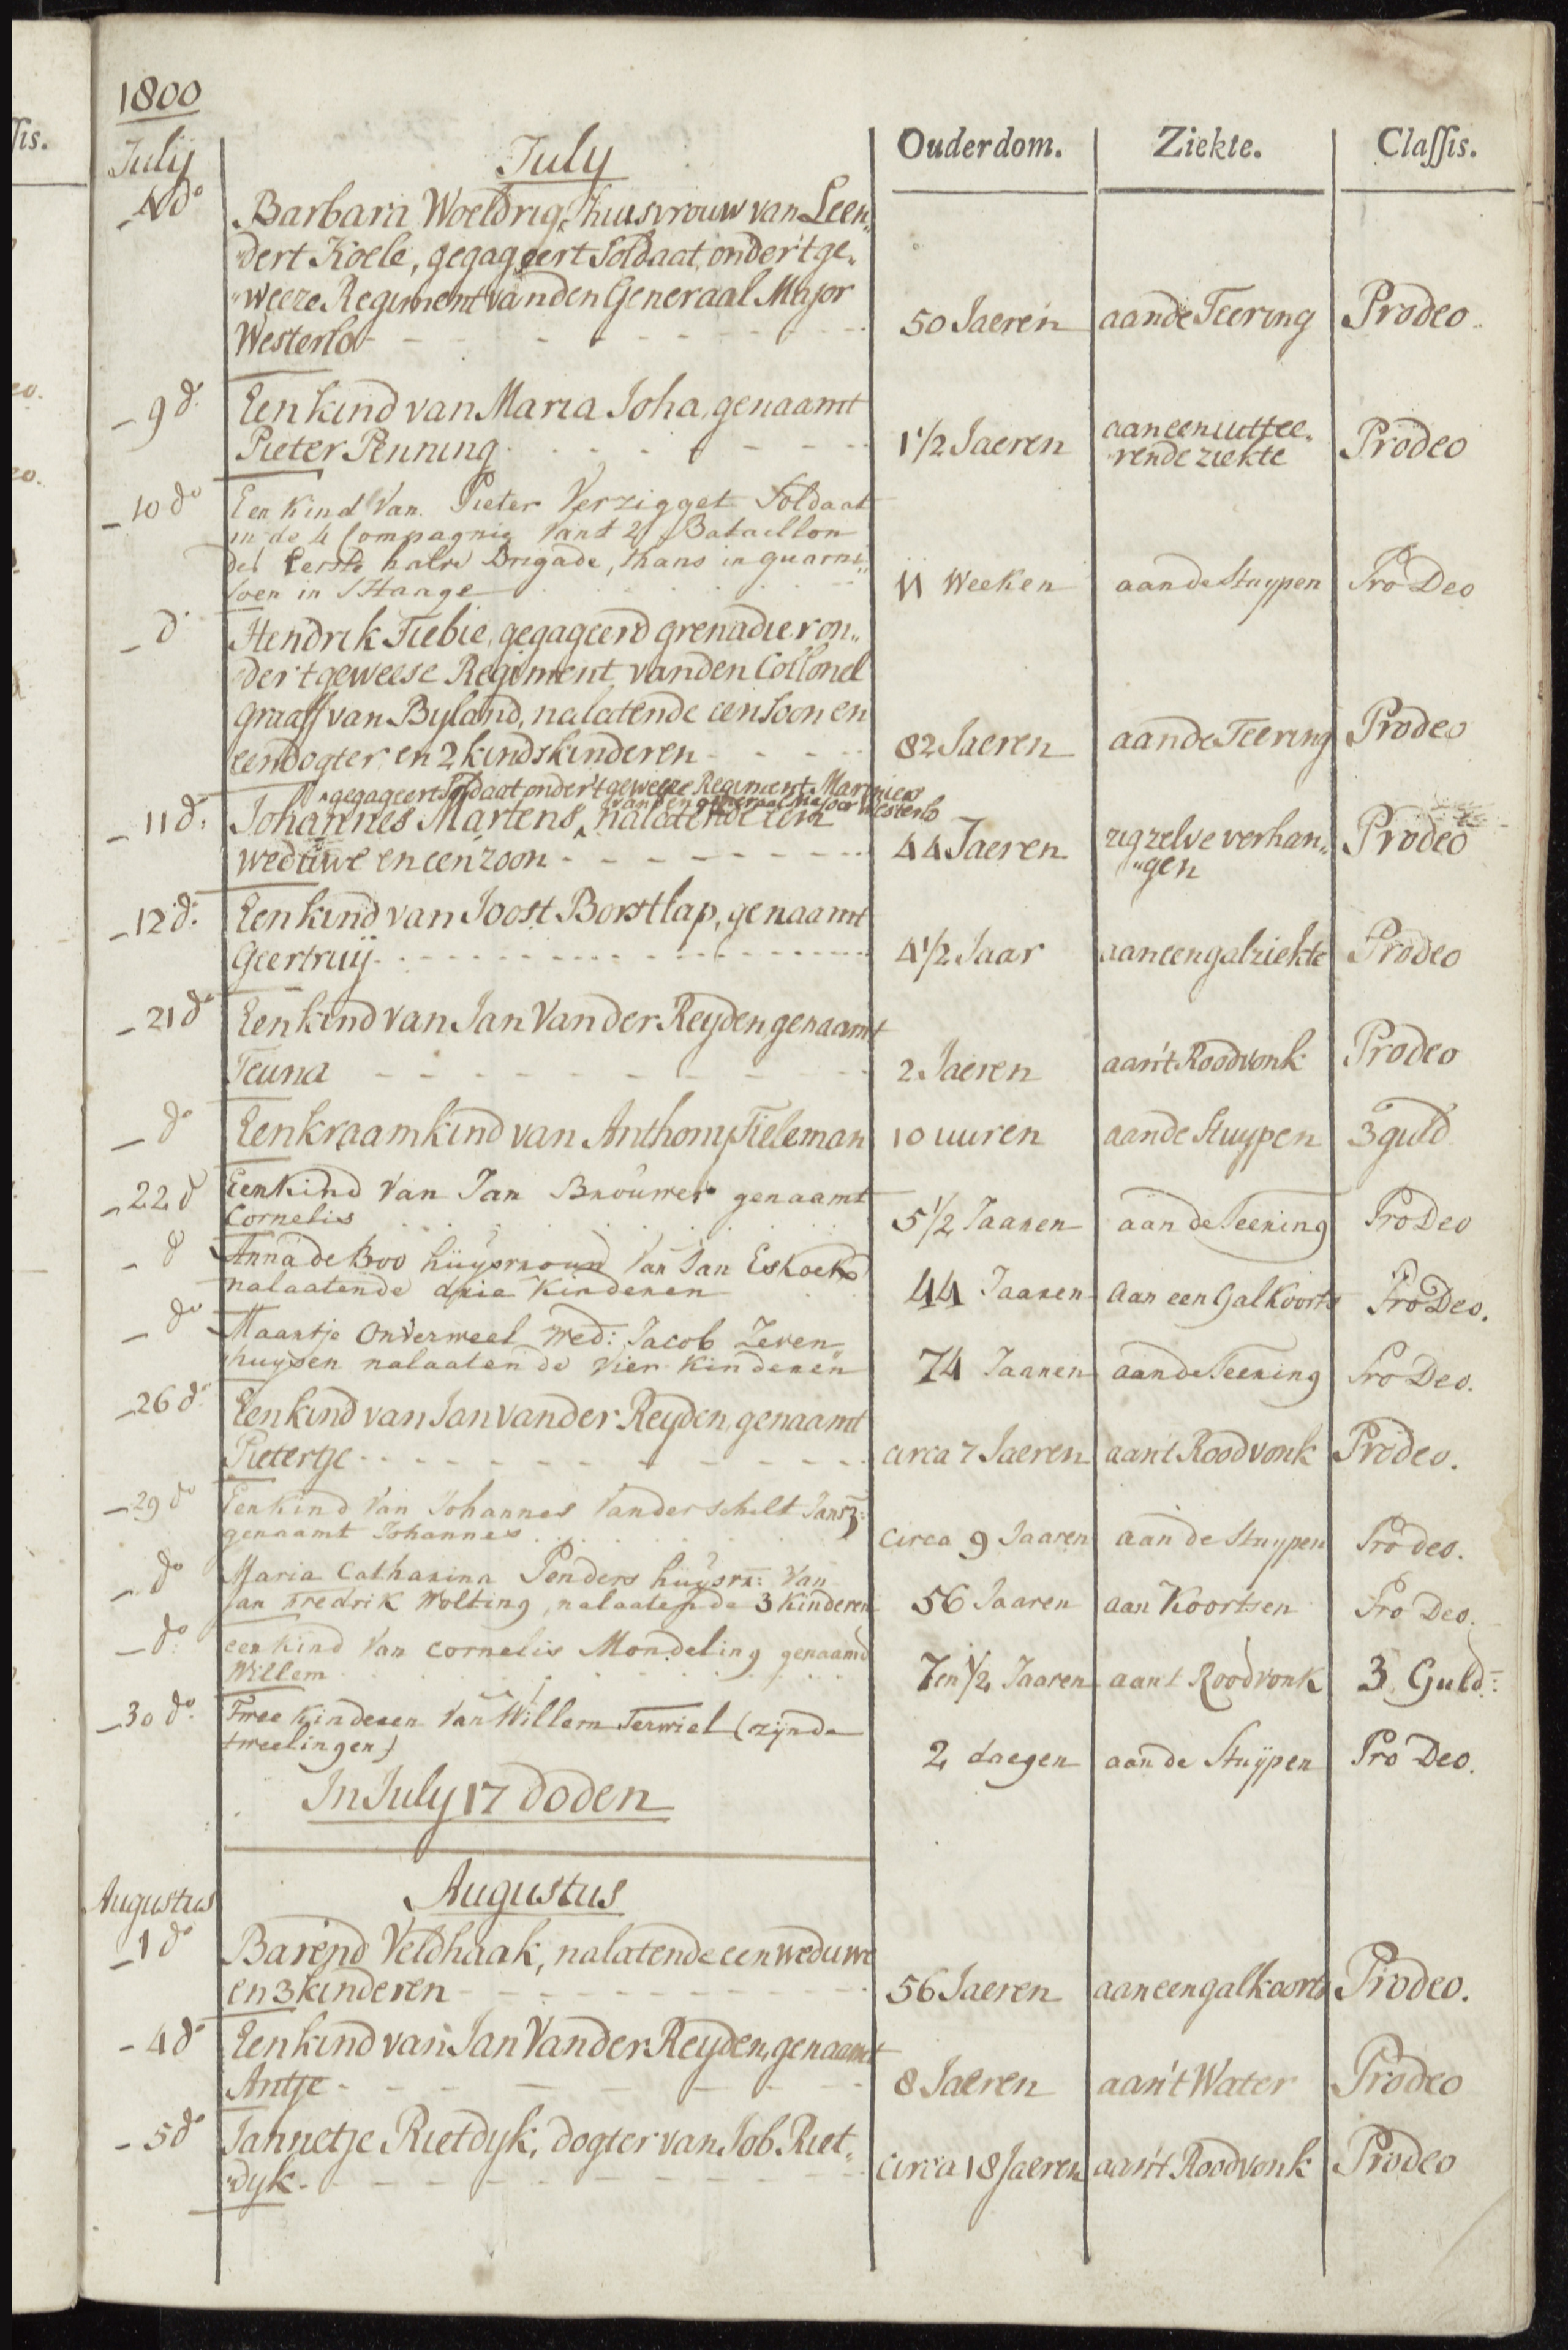 1800
July
July
Ouderdom.
Ziekte.
Classis.
4 do
Barbara Woeldrig, huisvrouw van Leen„
dert Koele, gegageert Soldaat, onder 't ge„
„weeze Regiment van den Generaal Major
Westerlo
50 Jaeren
aan de Teering
Prodeo
9 d.
Een kind van Maria Joha, genaamt
Pieter Penning
1 1/2 Jaeren
aan een uittee„
rende ziekte
Prodeo
10 do
Een Kind Van Pieter Verzigget Soldaat
in de 4 Compagnie Van t 2 Bataillon
der Eerste halve Brigade, thans in guarni„
soen in S Hange
11 Weeken
aan de Stuypen
Pro Deo
d.
Hendrik Tiebie, gegageerd grenadier on„
der 't geweese Regiment van den Collonel
Graaff van Byland, nalatende een Soon en
een dogter en 2 kindskinderen
82 Jaeren
aan de Teering
Prodeo
gegageert Soldaat onder 't geweeze Regiment Mariniers
van den generaal Major Westerlo
11 d.
Johannes Martens, nalatende een
weduwe en een zoon
44 Jaeren
zig zelve verhan„
„gen
Prodeo
12 d.
Een kind van Joost Borstlap, genaamt
Geertruij
4 1/2 Jaar
aan een galziekte
Prodeo
21 do
Een kind van Jan Van der Reyden genaamt
Teuna
2 Jaeren
aan't Roodvonk
Prodeo
do
Een kraamkind van Anthony Tieleman
10 uuren
aan de Stuypen
3 guld
22 d
Een Kind Van Jan Brouwer genaamt
Cornelis
5 1/2 Jaaren
aan de Teering
Pro Deo
d
Anna de Boo huysvrouw Van Jan Eskoek
nalaatende drie Kinderen
44 Jaaren
aan een Galkoorts
Pro Deo.
do
Maartje Onderweel Wed: Jacob Zeven„
huysen nalaatende vier Kinderen
74 Jaaren
aan de Teering
Pro Deo.
26 d.
Een kind van Jan van der Reyden, genaamt
Pietertje
circa 7 Jaeren
aan't Roodvonk
Prodeo.
29 do
Een kind Van Johannes Van der Schelt Jansz:
genaamt Johannes
Circa 9 Jaaren
aan de Stuypen
Pro deo.
do
Maria Catharina Penders huysvr: Van
Jan Fredrik Wolting, nalaatende 3 Kinderen
56 Jaaren
aan Koortsen
Pro Deo.
do
een kind Van Cornelis Mondeling genaamd
Willem
7 en 1/2 Jaaren
aan t Roodvonk
3 Guld:
30 do
Twee Kinderen Van Willem Terwiel (zijnde
tweelingen)
2 daegen
aan de Stuijpen
Pro Deo.
In July 17 doden
Augustus
Augustus
1 do
Barend Veldhaak, nalatende een weduwe
en 3 kinderen
56 Jaeren
aan een galkoorts
Prodeo.
4 do
Een kind van Jan Van der Reyden, genaamt
Antje
8 Jaeren
aan't Water
Prodeo
5 do
Jannetje Rietdyk, dogter van Job Riet„
dyk
circa 18 Jaeren
aan't Roodvonk
Prodeo